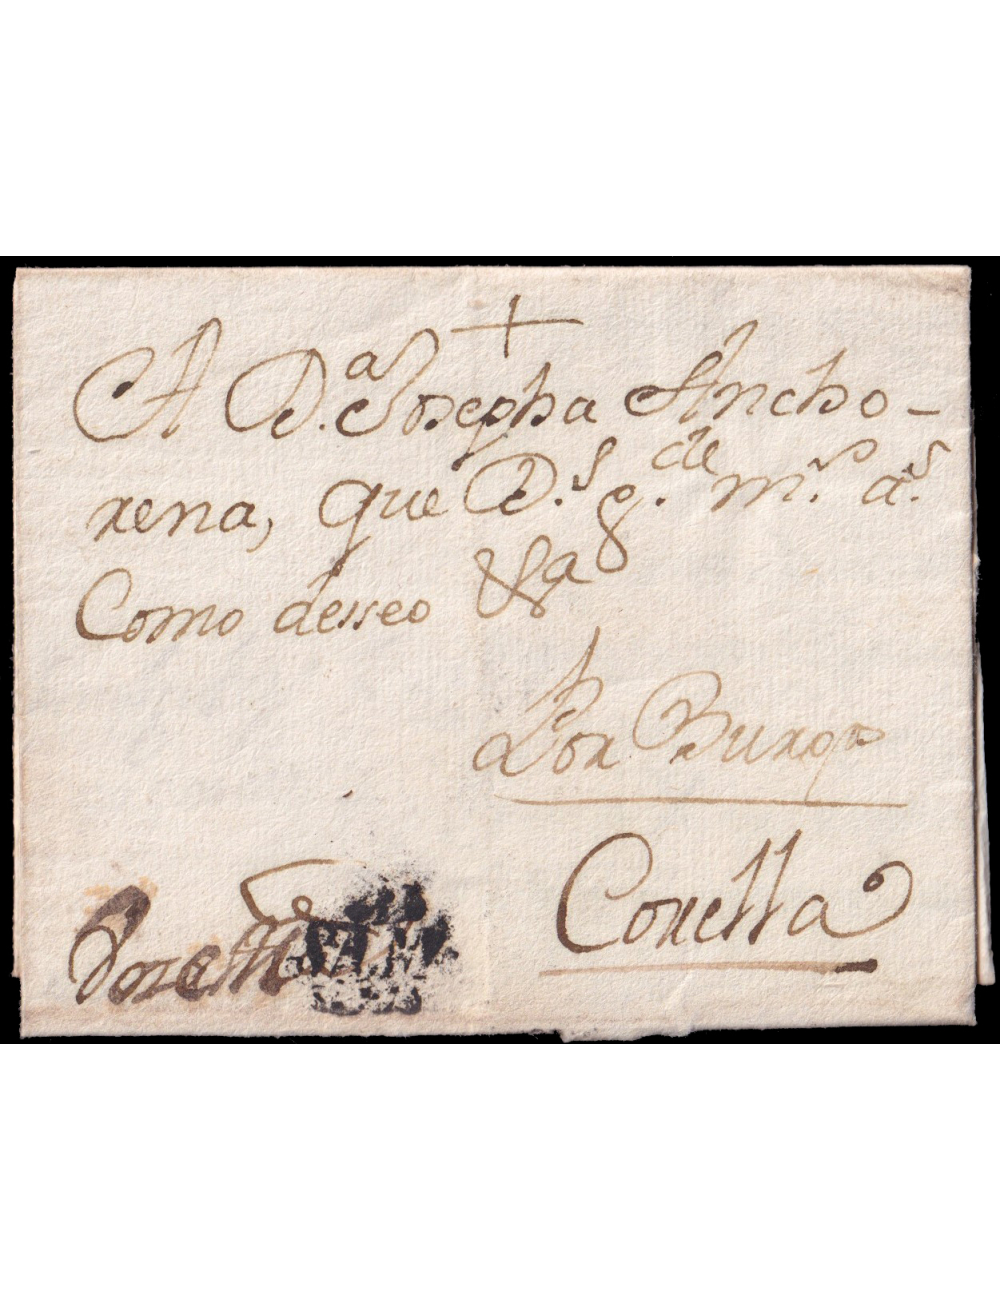 +
A D.ª Josepha Ancho-
rena, que D.s g.de m.s a.s
Como desseo &a
Por Burgos
Corella